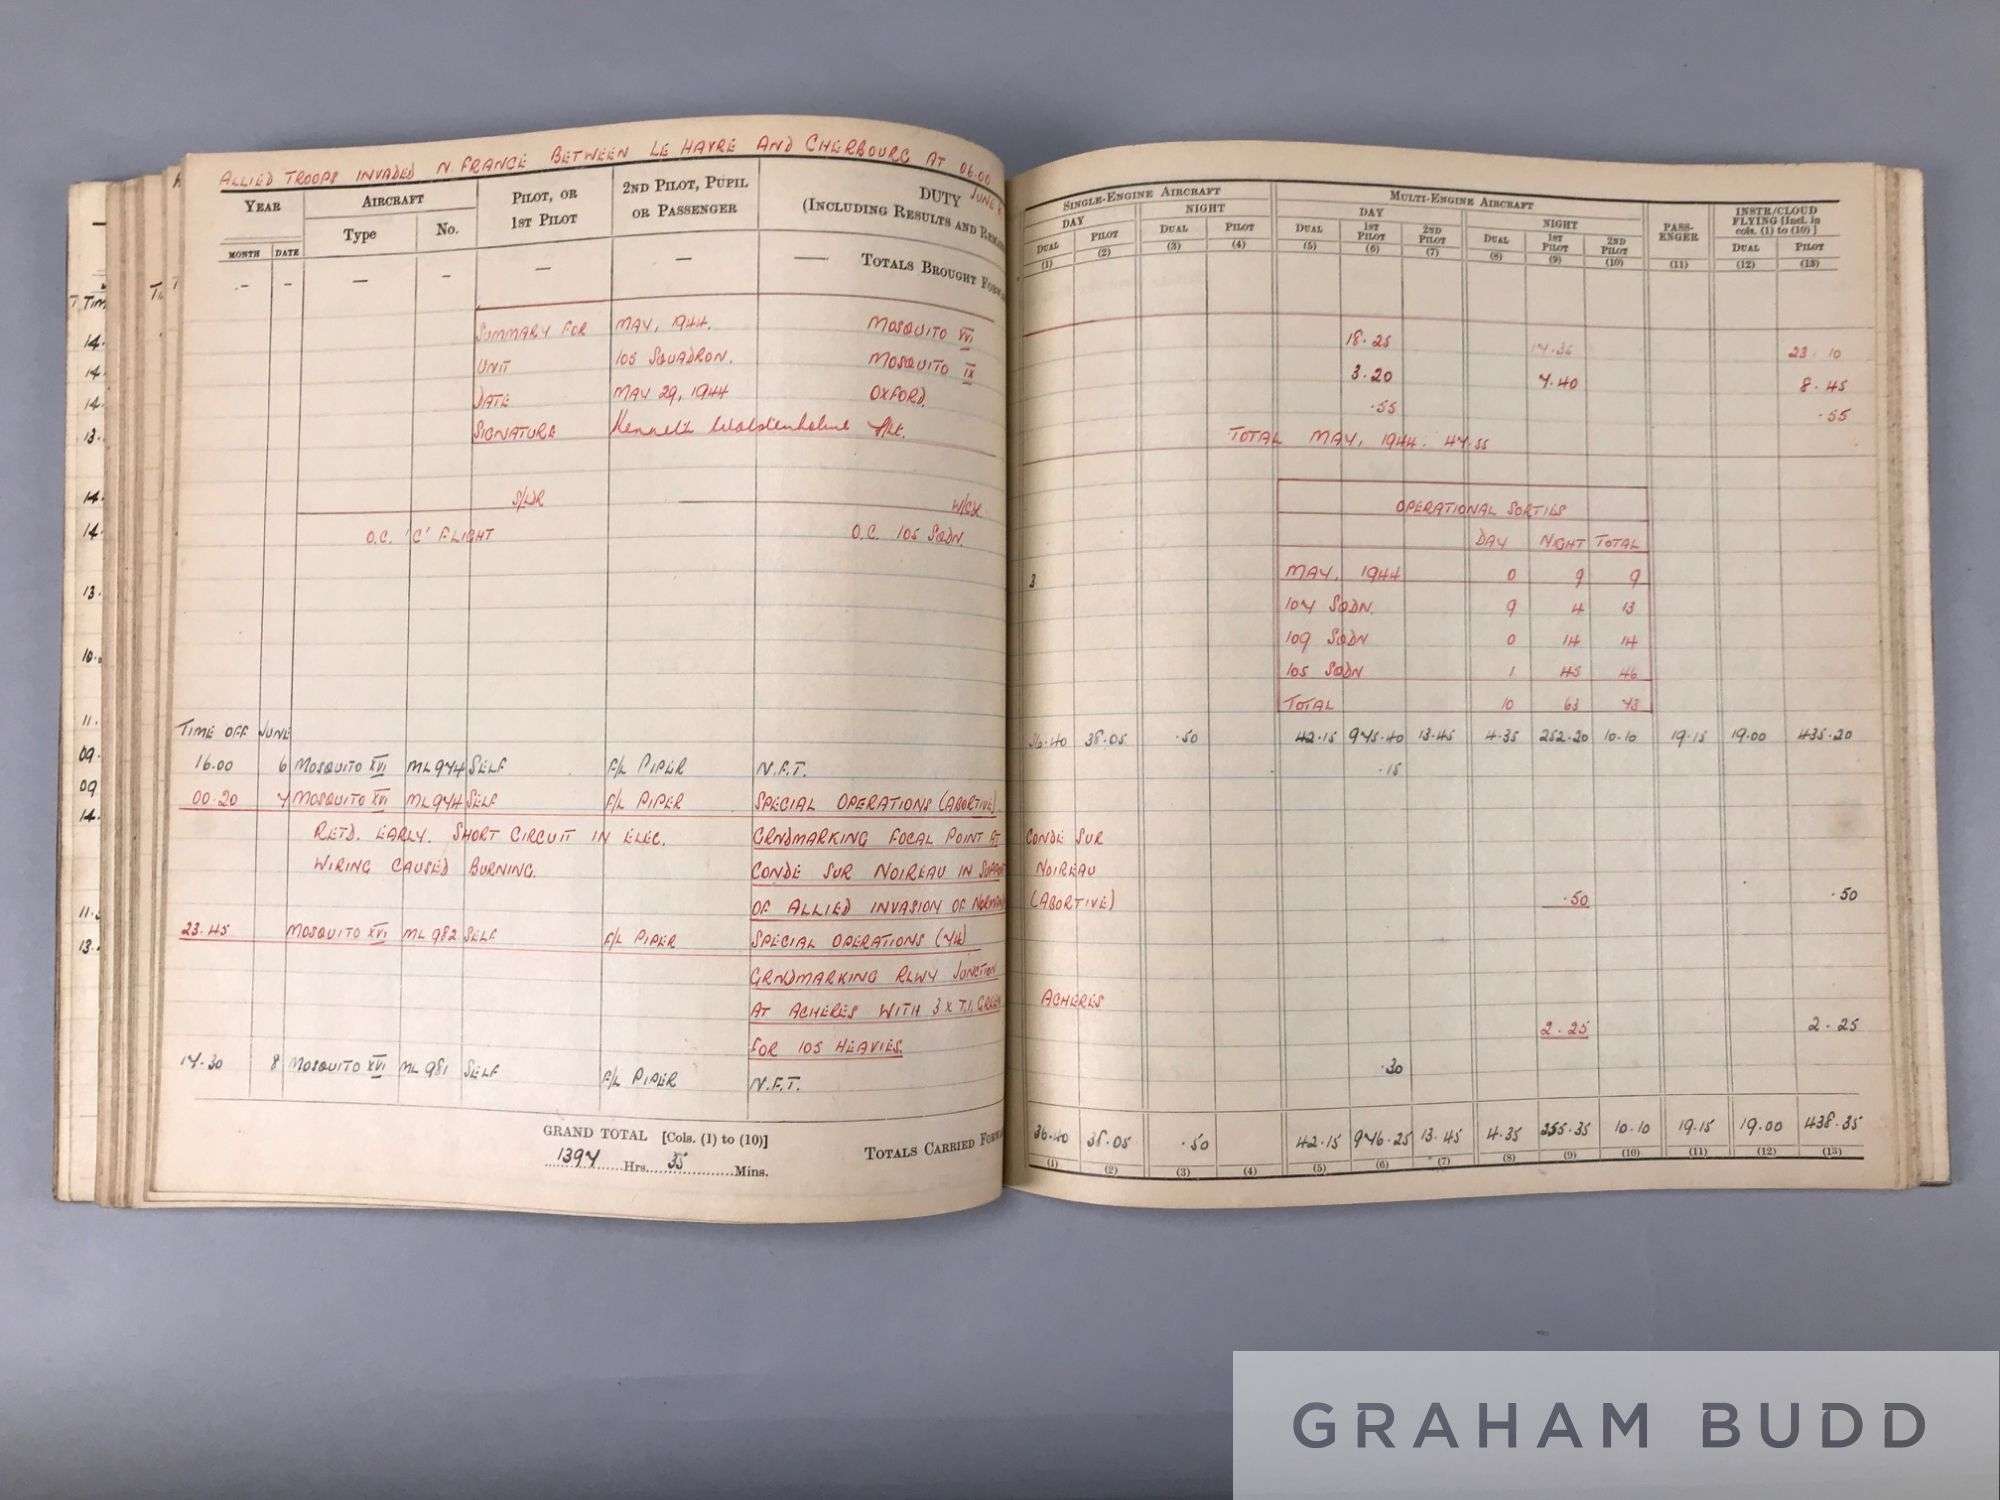 ALLIED TROOPS INVADED N. FRANCE BETWEEN LE HAVRE AND CHERBOURG AT 06.00
JUNE 6
YEAR AIRCRAFT PILOT, OR 1ST PILOT 2ND PILOT, PUPIL OR PASSENGER DUTY (INCLUDING RESULTS AND
MONTH DATE Type No.
— — — — — — — TOTALS BROUGHT
SUMMARY FOR MAY, 1944. MOSQUITO XVI
UNIT 105 SQUADRON. MOSQUITO IX
DATE MAY 29, 1944 OXFORD.
SIGNATURE Kenneth Wolstenholme F/Lt.
S/LDR
O.C. 'C' FLIGHT O.C. 105 SQDN.
TIME OFF JUNE
16.00 6 MOSQUITO XVI ML974 SELF F/L PIPER N.F.T.
00.20 7 MOSQUITO XVI ML974 SELF F/L PIPER SPECIAL OPERATIONS (ABORTIVE)
RETD. EARLY. SHORT CIRCUIT IN ELEC. GRNDMARKING FOCAL POINT AT
WIRING CAUSED BURNING. CONDE SUR NOIREAU IN
OF ALLIED INVASION OF
23.45 MOSQUITO XVI ML982 SELF F/L PIPER SPECIAL OPERATIONS (74)
GRNDMARKING RLWY JUNCTION
AT ACHERES WITH 3 x T.I. GREEN
FOR 105 HEAVIES.
17.30 8 MOSQUITO XVI ML981 SELF F/L PIPER N.F.T.
GRAND TOTAL [Cols. (1) to (10)]
1397 Hrs. 35 Mins.
TOTALS CARRIED
SINGLE-ENGINE AIRCRAFT MULTI-ENGINE AIRCRAFT PASS-ENGER INSTR/CLOUD FLYING [Incl. in cols. (1) to (10)]
DAY NIGHT DAY NIGHT
DUAL PILOT DUAL PILOT DUAL 1ST PILOT 2ND PILOT DUAL 1ST PILOT 2ND PILOT DUAL PILOT
(1) (2) (3) (4) (5) (6) (7) (8) (9) (10) (11) (12) (13)
18.25 23.10
3.20 7.40 8.45
.55 .55
TOTAL MAY, 1944. 47.55
OPERATIONAL SORTIES
DAY NIGHT TOTAL
3
MAY, 1944 0 9 9
107 SQDN. 9 4 13
109 SQDN 0 14 14
105 SQDN 1 45 46
TOTAL 10 63 73
36.40 38.05 .50 42.15 975.40 13.45 4.35 252.20 10.10 19.15 19.00 435.20
.15
CONDE SUR
NOIREAU
(ABORTIVE) .50 .50
ACHERES
2.25 2.25
.30
36.40 38.05 .50 42.15 976.25 13.45 4.35 255.35 10.10 19.15 19.00 438.35
(1) (2) (3) (4) (5) (6) (7) (8) (9) (10) (11) (12) (13)
TIM
14.
14.
14.
13.
14.
14.
13.
10.
11.
09.
09
14.
11.
13.
GRAHAM BUDD